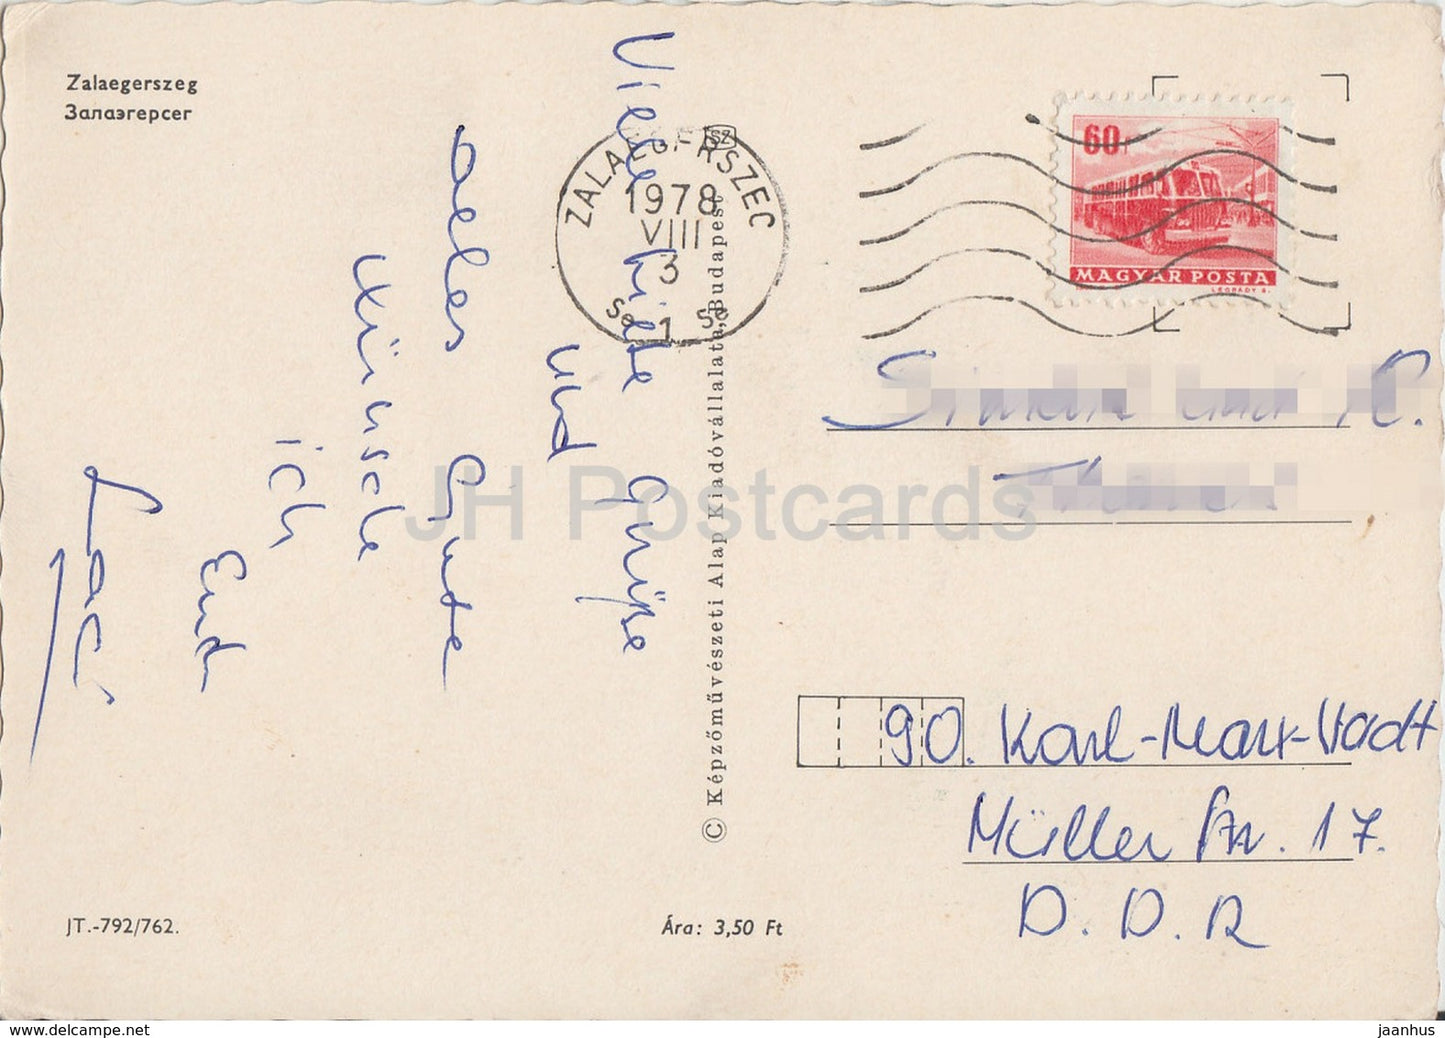 Zalaegerszeg
Залаэгерсег
Viele liebe Grüße
und
alles Gute
wünsche
ich
Euch
Laci
ZALAEGERSZEG
SZ
1978
VIII
3
1
60f
MAGYAR POSTA
LÉGRÁDY S.
© Képzőművészeti Alap Kiadóvállalata, Budapest
90. Karl-Marx-Stadt
Müller Str. 17.
D. D. R
JT.-792/762.
Ára: 3,50 Ft
JH Postcards
www.delcampe.net
jaanhus